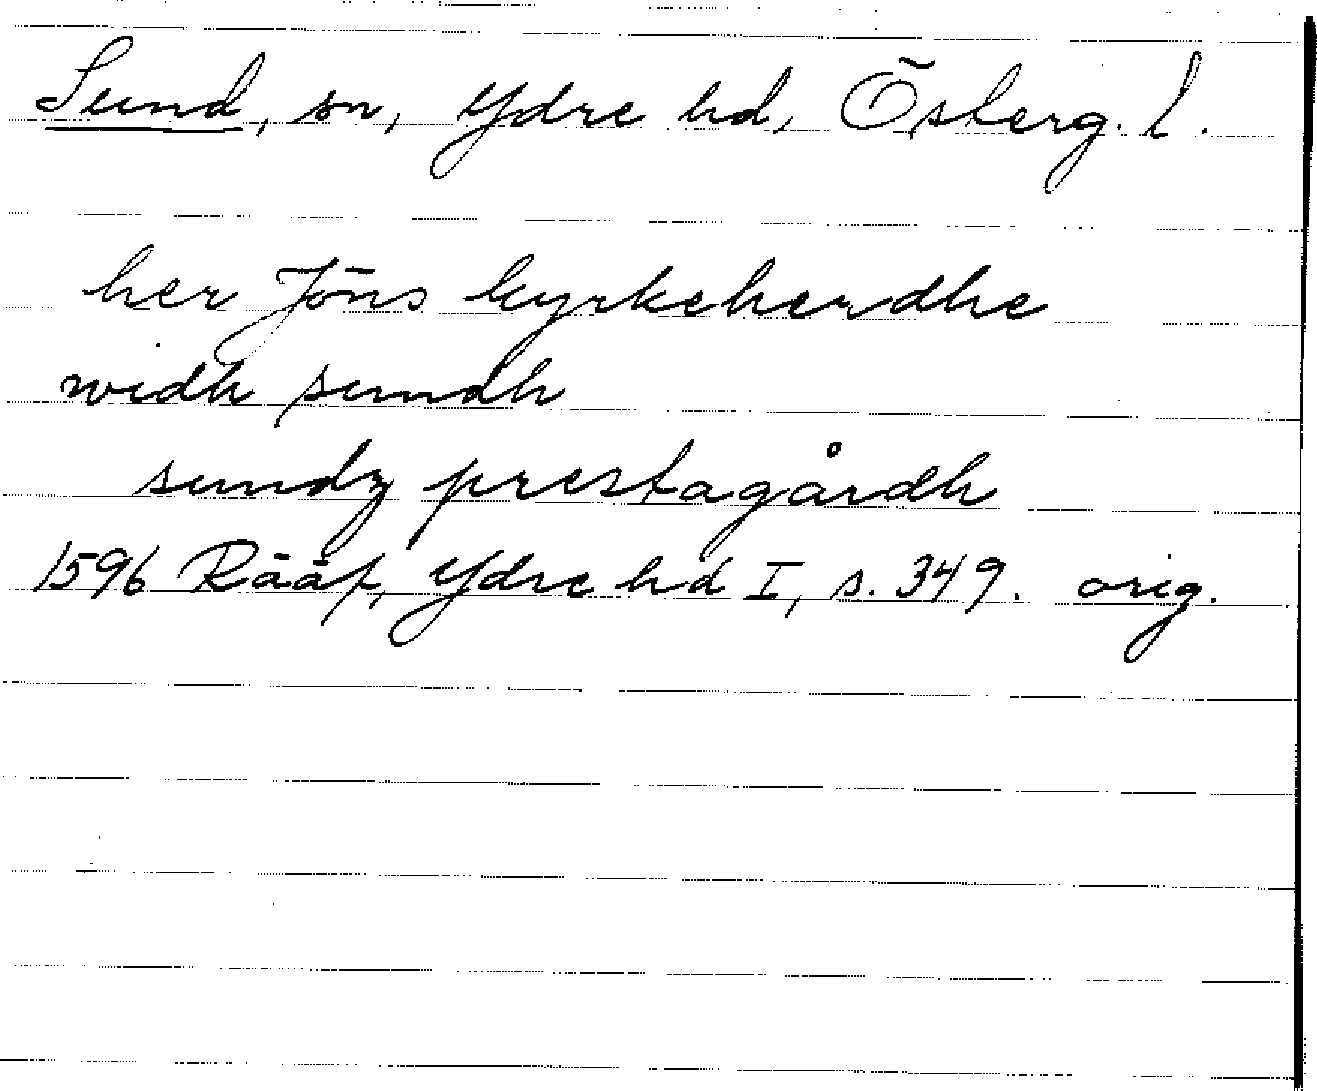 Sund, sn, Ydre hd, Österg. l.
her Jöns kyrkeherdhe
widh sundh
sundz prestagårdh
1596 Rääf, Ydre hd I, s. 349. orig.